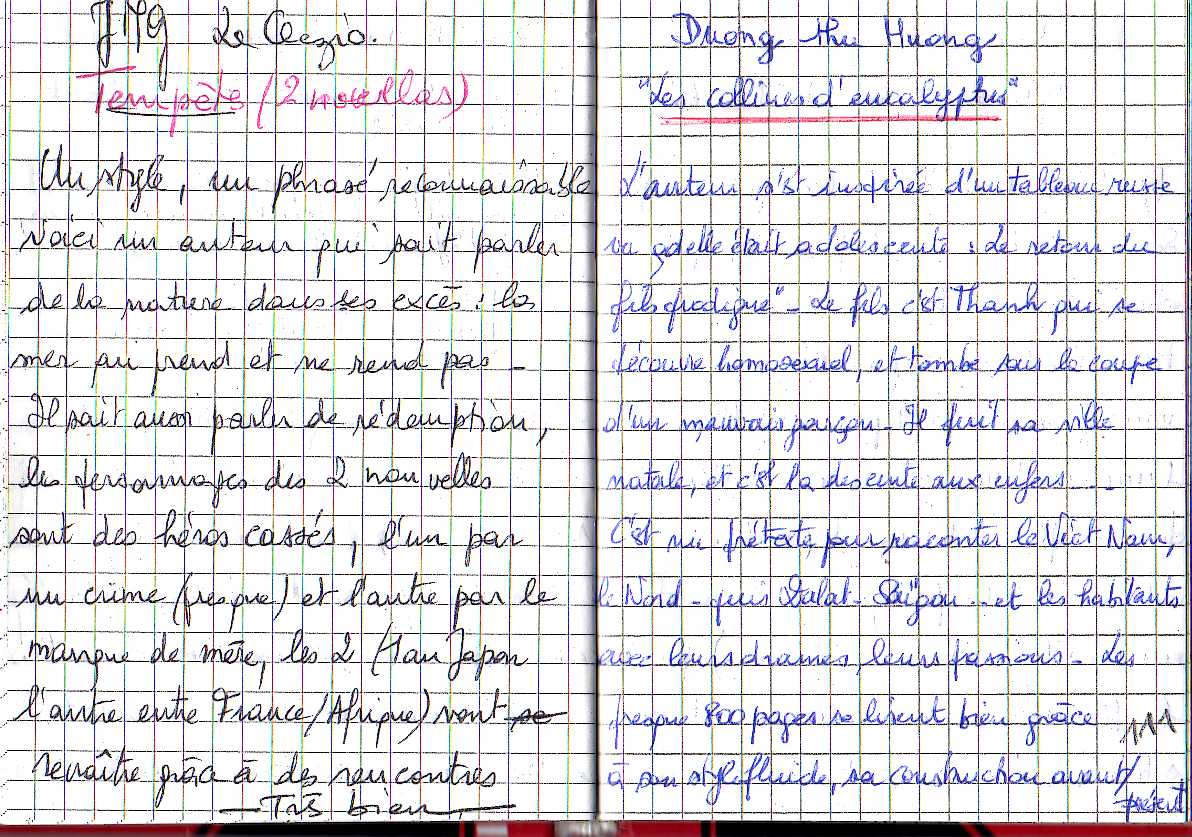 JMG Le Clezio.
Tempête (2 novellas)
Un style, un phrasé reconnaissable
Voici un auteur qui sait parler
de la nature dans ses excès : la
mer qui prend et ne rend pas -
Il sait aussi parler de rédemption,
les personnages des 2 nouvelles
sont des héros cassés, l'un par
un crime (presque) et l'autre par le
manque de mère, les 2 (1 au Japon
l'autre entre France/Afrique) vont se
renaître grâce à des rencontres
— Très bien —
Duong thu Huong
"Les collines d'eucalyptus"
L'auteur s'est inspirée d'un tableau russe
vu qd elle était adolescente : Le retour du
fils prodigue" - Le fils c'est Thanh qui se
découvre homosexuel, et tombe sous la coupe
d'un mauvais garçon - Il fuit sa ville
natale, et c'est la descente aux enfers ...
C'est un prétexte pour raconter le Viêt Nam,
le Nord - puis Dalat - Saïgon .. et les habitants
avec leurs drames, leurs passions - Les
presque 800 pages se lisent bien grâce
à son style fluide, sa construction avant/
présent
111